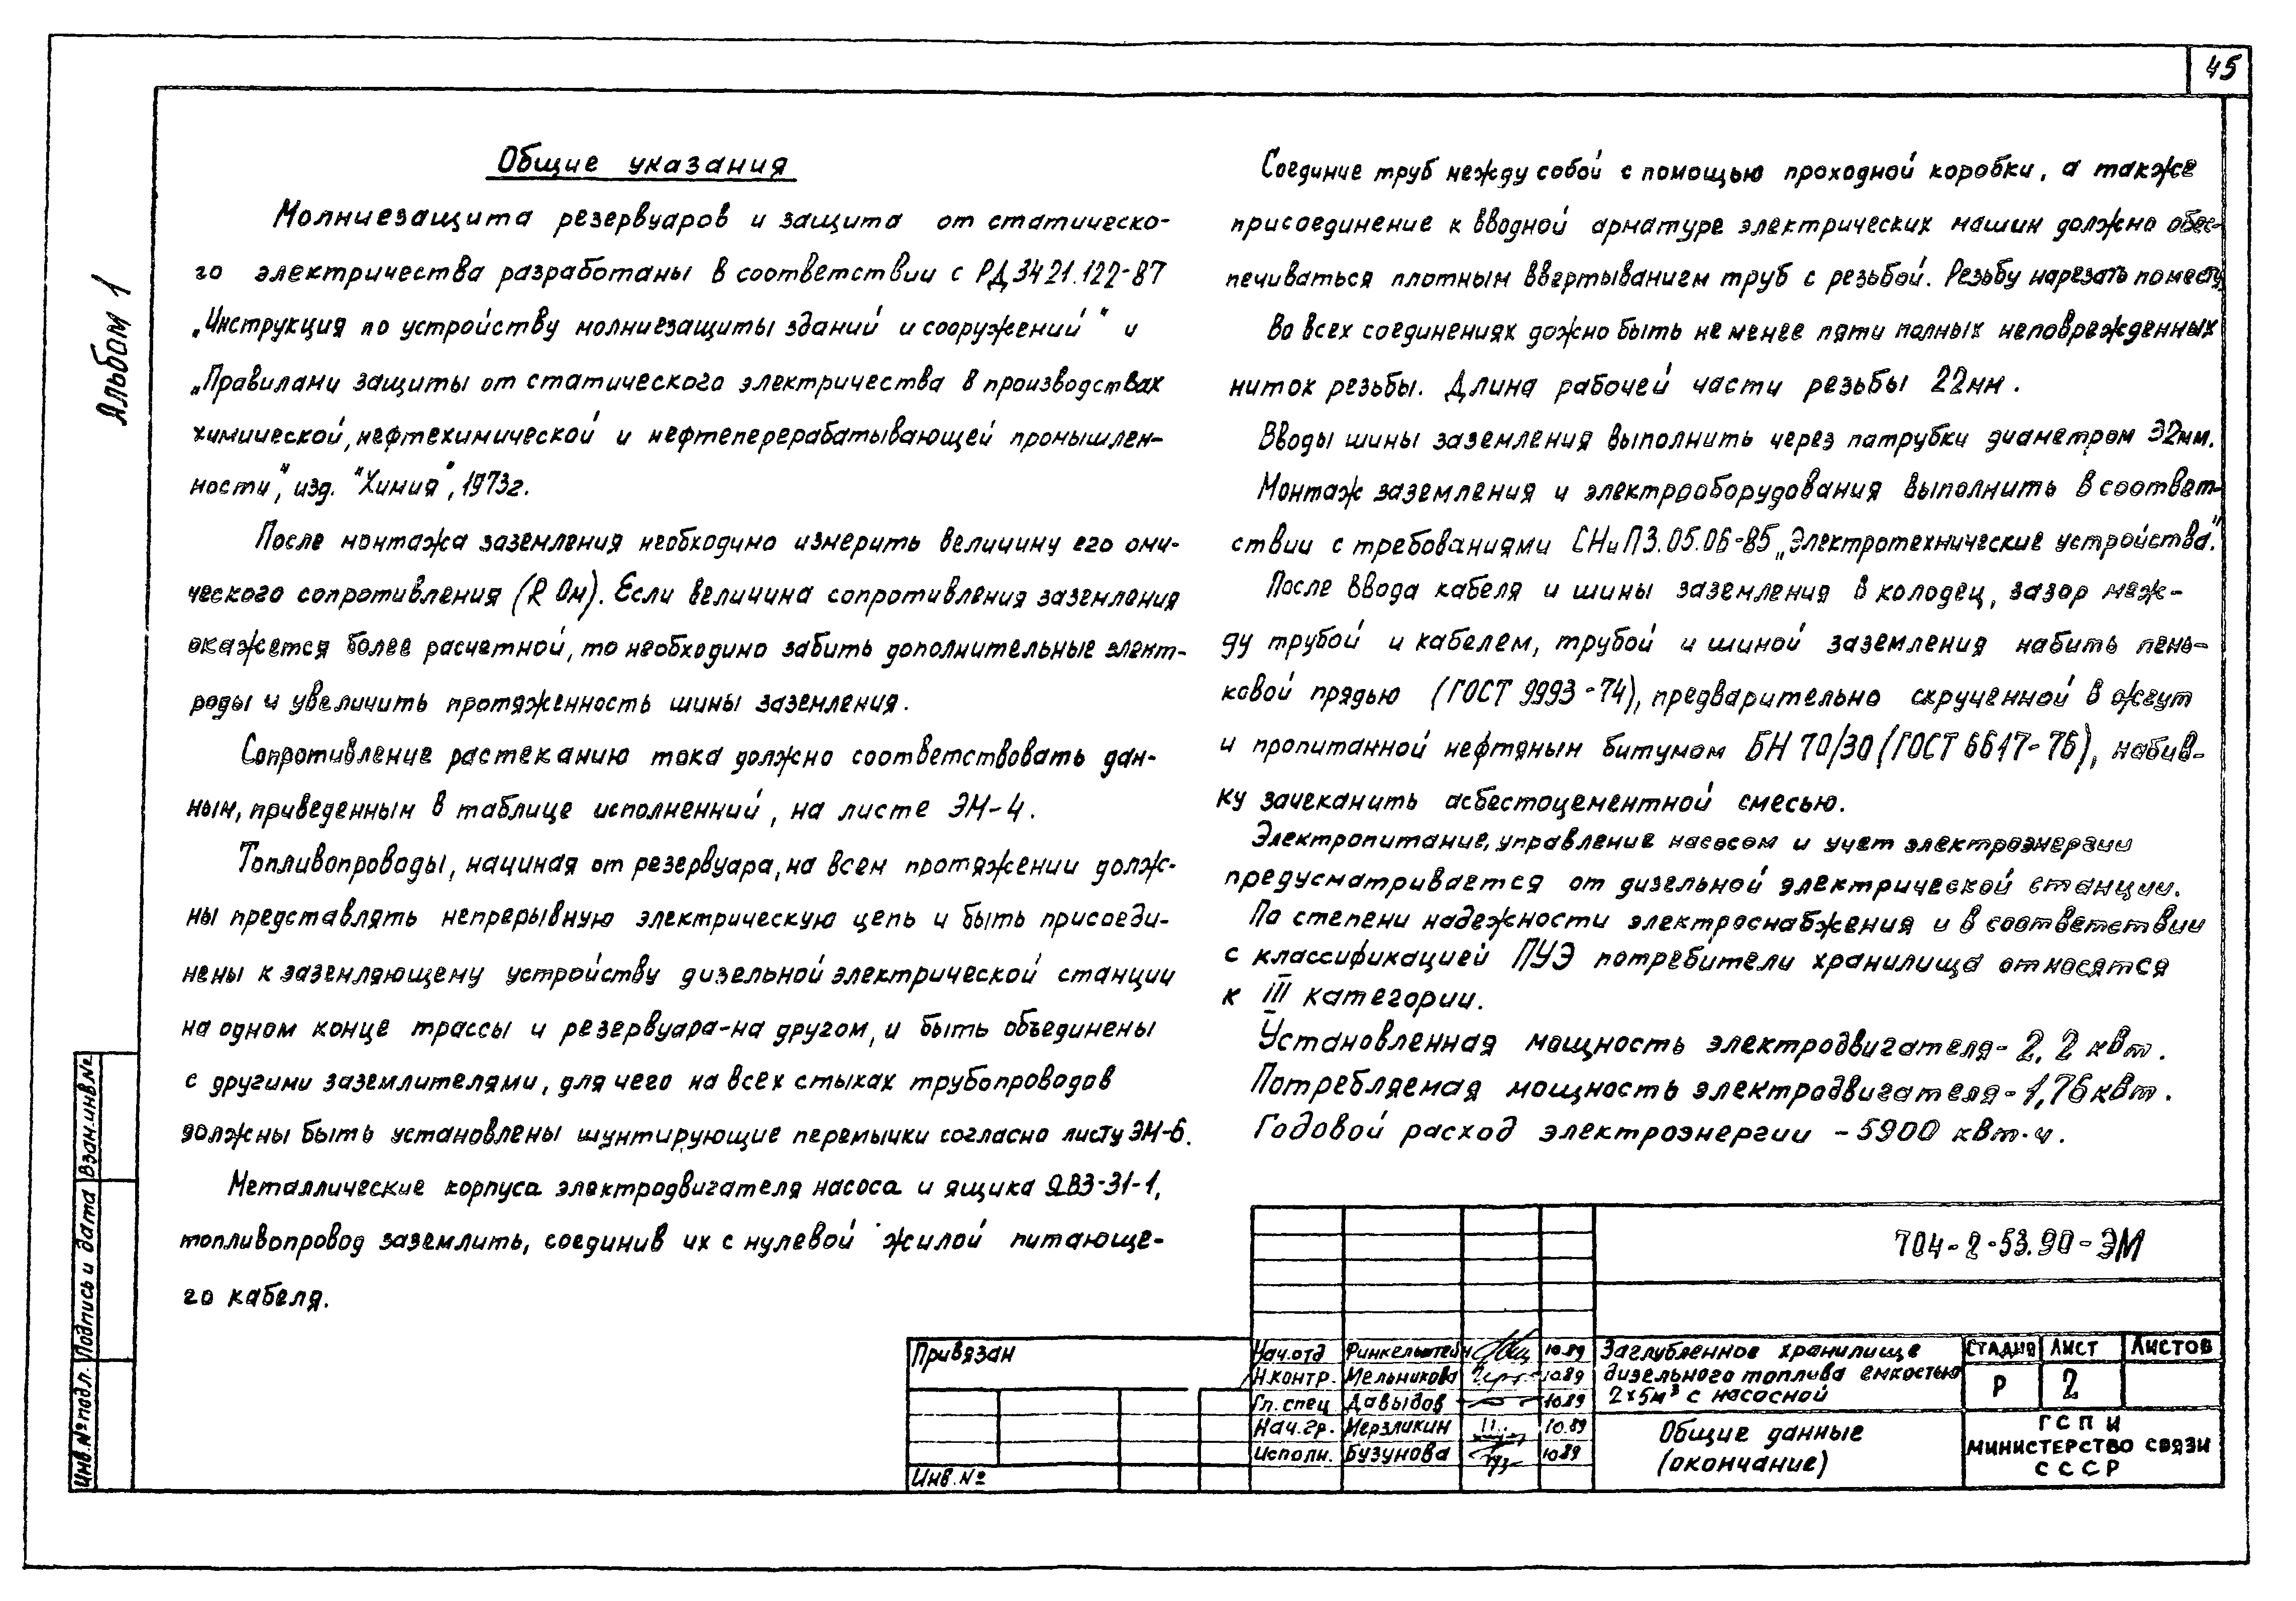 45
Альбом 1
Общие указания
Молниезащита резервуаров и защита от статическо-
го электричества разработаны в соответствии с РД 34 21.122-87
„Инструкция по устройству молниезащиты зданий и сооружений“ и
„Правилами защиты от статического электричества в производствах
химической, нефтехимической и нефтеперерабатывающей промышлен-
ности“, изд. “Химия“, 1973г.
После монтажа заземления необходимо измерить величину его оми-
ческого сопротивления (R Ом). Если величина сопротивления заземления
окажется более расчетной, то необходимо забить дополнительные элект-
роды и увеличить протяженность шины заземления.
Сопротивление растеканию тока должно соответствовать дан-
ным, приведенным в таблице исполненний, на листе ЭМ-4.
Топливопроводы, начиная от резервуара, на всем протяжении долж-
ны представлять непрерывную электрическую цепь и быть присоеди-
нены к заземляющему устройству дизельной электрической станции
на одном конце трассы и резервуара-на другом, и быть объединены
с другими заземлителями, для чего на всех стыках трубопроводов
должны быть установлены шунтирующие перемычки согласно листу ЭМ-6.
Металлические корпуса электродвигателя насоса и ящика ЯВЗ-31-1,
топливопровод заземлить, соединив их с нулевой жилой питающе-
го кабеля.
Соединие труб между собой с помощью проходной коробки, а также
присоединение к вводной арматуре электрических машин должно обес-
печиваться плотным ввертыванием труб с резьбой. Резьбу нарезать по месту
Во всех соединениях дожно быть не менее пяти полных неповрежденных
ниток резьбы. Длина рабочей части резьбы 22мм.
Вводы шины заземления выполнить через патрубки диаметром 32мм.
Монтаж заземления и электрооборудования выполнить в соответ-
ствии с требованиями СНиП3.05.06-85 „Электротехнические устройства“.
После ввода кабеля и шины заземления в колодец, зазор меж-
ду трубой и кабелем, трубой и шиной заземления набить пень-
ковой прядью (ГОСТ 9993-74), предварительно скрученной в жгут
и пропитанной нефтяным битумом БН 70/30 (ГОСТ 6617-76), набив-
ку зачеканить асбестоцементной смесью.
Электропитание, управление насосом и учет электроэнергии
предусматривается от дизельной электрической станции.
По степени надежности электроснабжения и в соответствии
с классификацией ПУЭ потребители хранилища относятся
к III категории.
Установленная мощность электродвигателя- 2,2 квт.
Потребляемая мощность электродвигателя- 1,76 квт.
Годовой расход электроэнергии - 5900 квт·ч.
704-2-53.90-ЭМ
Привязан
Инв.№
Нач.отд Финкельштейн 10.89
Н.контр. Мельникова 10.89
Гл.спец Давыдов 10.89
Нач.гр. Мерзликин 10.89
Исполн. Бузунова 10.89
Заглубленное хранилище
дизельного топлива емкостью
2×5м³ с насосной
Стадия Лист Листов
Р 2
Общие данные
(окончание)
ГСПИ
Министерство связи
СССР
Инв.№ подл. Подпись и дата Взам.инв.№